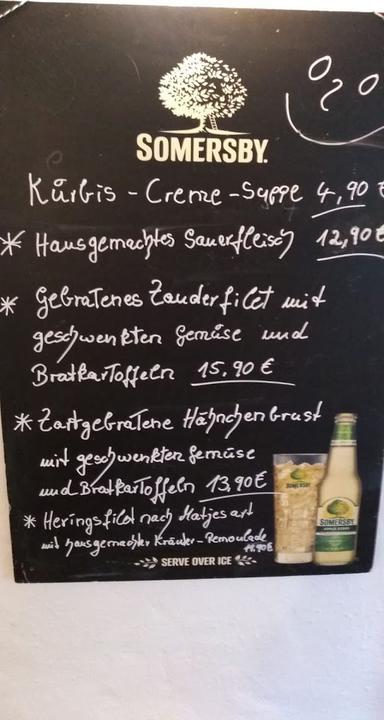 SOMERSBY.
Kürbis - Creme - Suppe 4,90 €
* Hausgemachtes Sauerfleisch 12,90 €
* Gebratenes Zanderfilet mit
geschwenkten Gemüse und
Bratkartoffeln 15,90 €
* Zartgebratene Hähnchenbrust
mit geschwenkten Gemüse
und Bratkartoffeln 13,90 €
* Heringsfilet nach Matjesart
mit hausgemachter Kräuter-Remoulade
SERVE OVER ICE
SOMERSBY
SOMERSBY